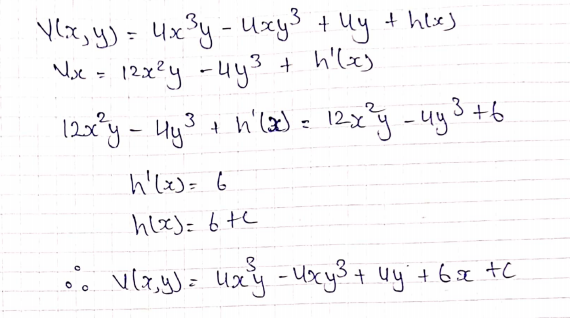 V(x,y) = 4x³y - 4xy³ + 4y + h(x)
Vx = 12x²y - 4y³ + h'(x)
12x²y - 4y³ + h'(x) = 12x²y - 4y³ + 6
h'(x) = 6
h(x) = 6 + C
∴ V(x,y) = 4x³y - 4xy³ + 4y + 6x + C